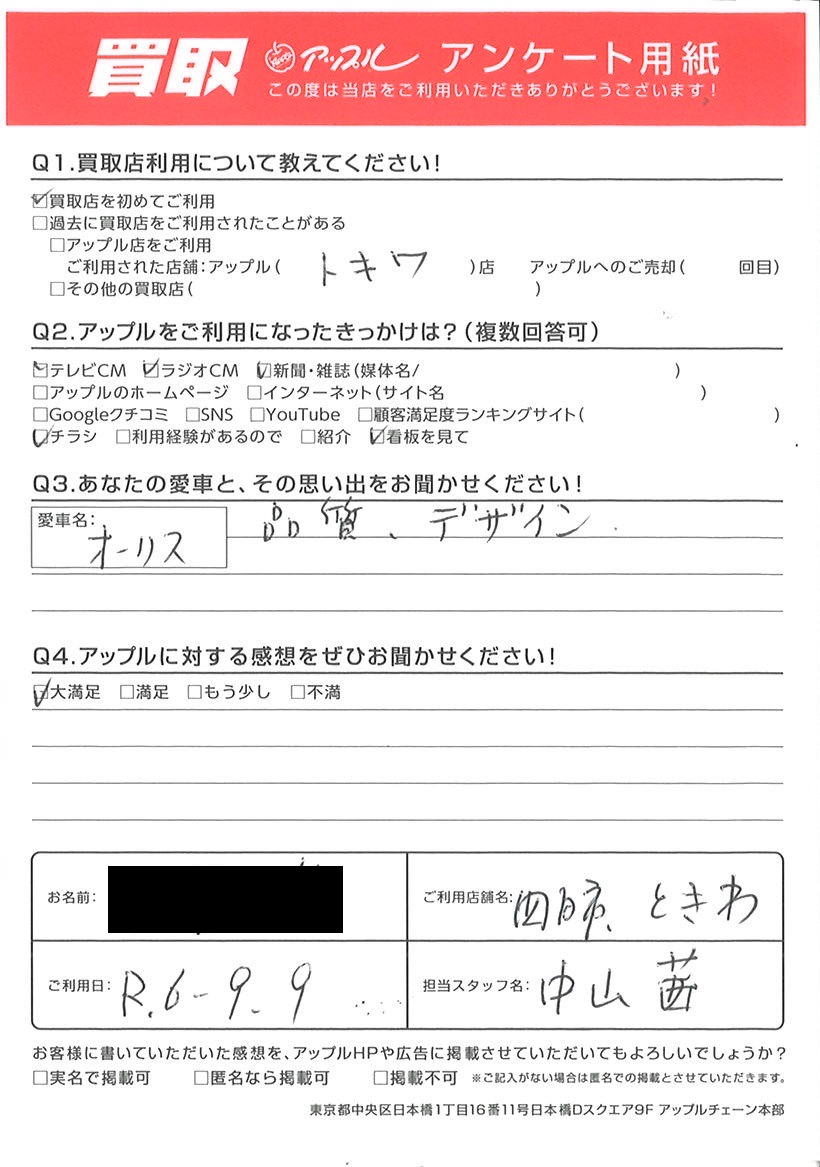 買取 アップル アンケート用紙
この度は当店をご利用いただきありがとうございます!
Q1.買取店利用について教えてください!
☑買取店を初めてご利用
□過去に買取店をご利用されたことがある
□アップル店をご利用
ご利用された店舗:アップル( トキワ )店 アップルへのご売却( 回目)
□その他の買取店( )
Q2.アップルをご利用になったきっかけは?(複数回答可)
☑テレビCM ☑ラジオCM ☑新聞・雑誌(媒体名/ )
□アップルのホームページ □インターネット(サイト名 )
□Googleクチコミ □SNS □YouTube □顧客満足度ランキングサイト( )
☑チラシ □利用経験があるので □紹介 ☑看板を見て
Q3.あなたの愛車と、その思い出をお聞かせください!
愛車名: オーリス 品質、デザイン.
Q4.アップルに対する感想をぜひお聞かせください!
☑大満足 □満足 □もう少し □不満
お名前:
ご利用店舗名: 四日市 ときわ
ご利用日: R.6-9.9
担当スタッフ名: 中山 茜
お客様に書いていただいた感想を、アップルHPや広告に掲載させていただいてもよろしいでしょうか?
□実名で掲載可 □匿名なら掲載可 □掲載不可 ※ご記入がない場合は匿名での掲載とさせていただきます。
東京都中央区日本橋1丁目16番11号日本橋Dスクエア9F アップルチェーン本部